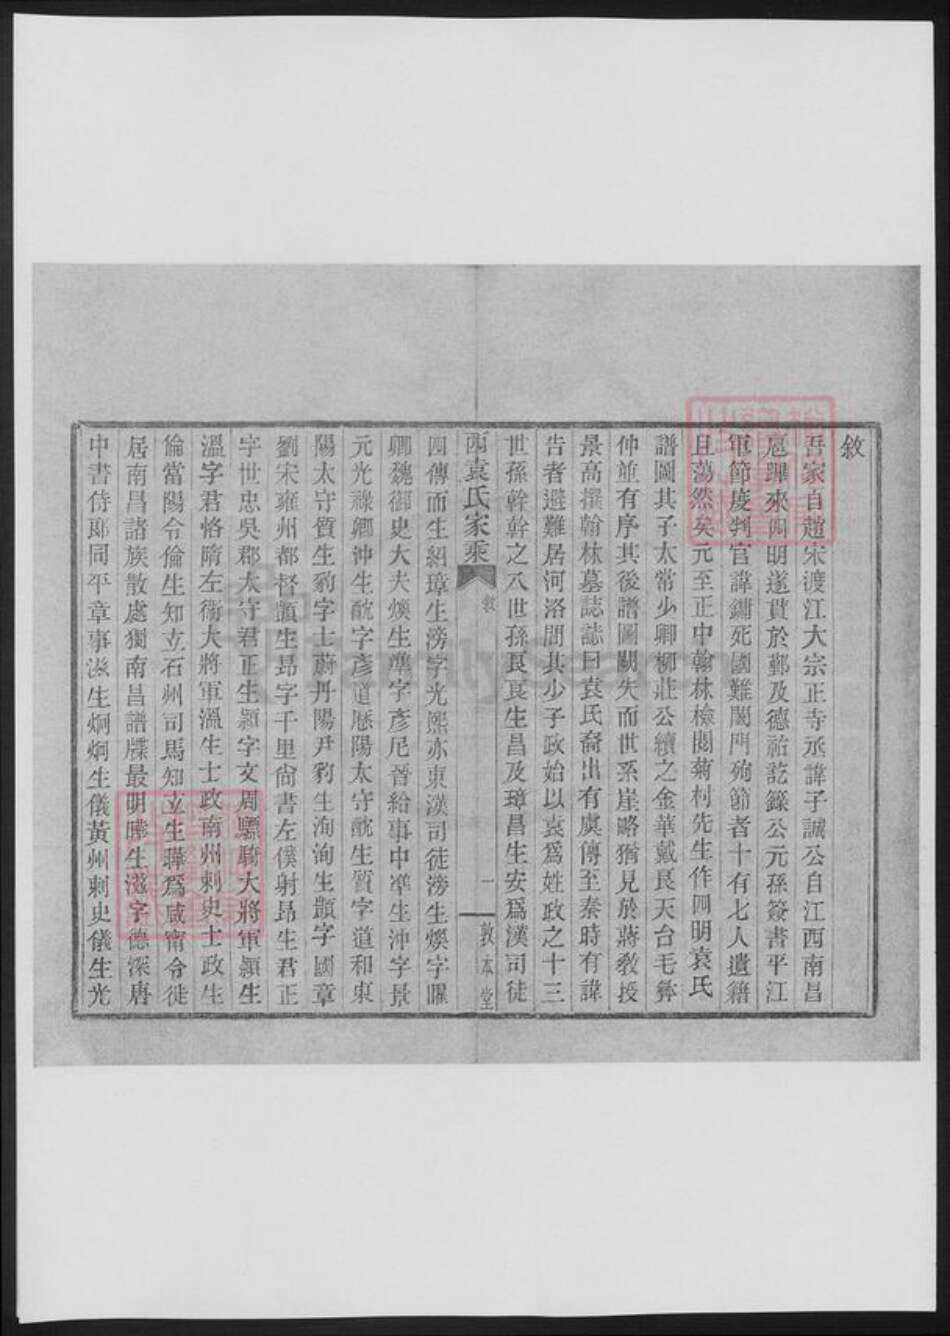 敘
吾家自趙宋渡江大宗正寺丞諱子誠公自江西南昌
扈蹕來四明遂貫於鄞及德祐訖籙公元孫簽書平江
軍節度判官諱鏞死國難闔門殉節者十有七人遺籍
且蕩然矣元至正中翰林檢閱菊村先生作四明袁氏
譜圖其子太常少卿柳莊公續之金華戴良天台毛彝
仲並有序其後譜圖闕失而世系崖略猶見於蔣教授
景高撰翰林墓誌誌曰袁氏裔出有虞傳至秦時有諱
告者避難居河洛間其少子政始以袁為姓政之十三
世孫幹幹之八世孫良良生昌及璋昌生安為漢司徒
西袁氏家乘
敘
一
敦本堂
四傳而生紹璋生滂字光熙亦東漢司徒滂生煥字曜
卿魏御史大夫煥生準字彥尼晉給事中準生沖字景
元光祿卿沖生耽字彥道歷陽太守耽生質字道和東
陽太守質生豹字士蔚丹陽尹豹生洵洵生顗字國章
劉宋雍州都督顗生昂字千里尙書左僕射昂生君正
字世忠吳郡太守君正生穎字文周驃騎大將軍穎生
溫字君恪隋左衛大將軍溫生士政南州刺史士政生
倫當陽令倫生知立石州司馬知立生曄為咸甯令徙
居南昌諸族散處獨南昌譜牒最明曄生滋字德深唐
中書侍郎同平章事滋生炯炯生儀黃州刺史儀生光